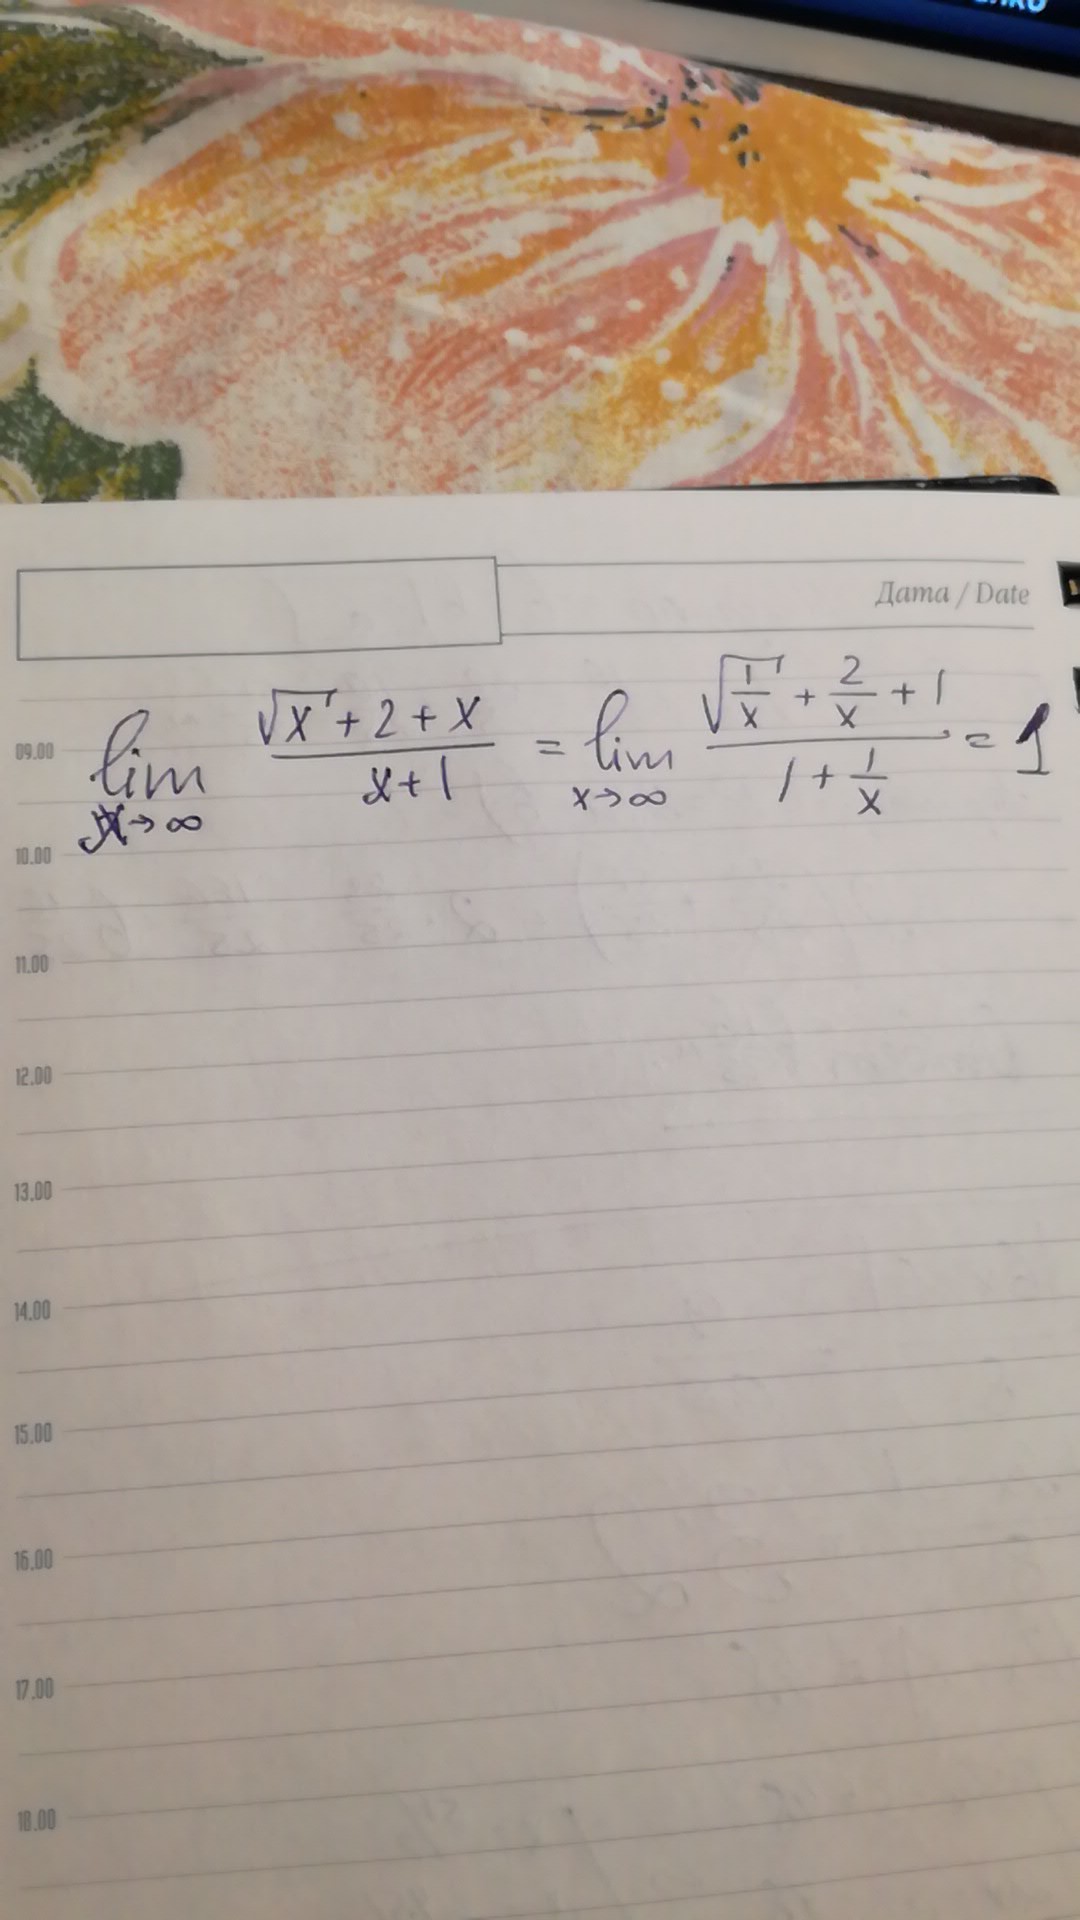 Дата / Date
lim x→∞ (√x + 2 + x)/(x+1) = lim x→∞ (√(1/x) + 2/x + 1)/(1 + 1/x) = 1
09.00
10.00
11.00
12.00
13.00
14.00
15.00
16.00
17.00
18.00